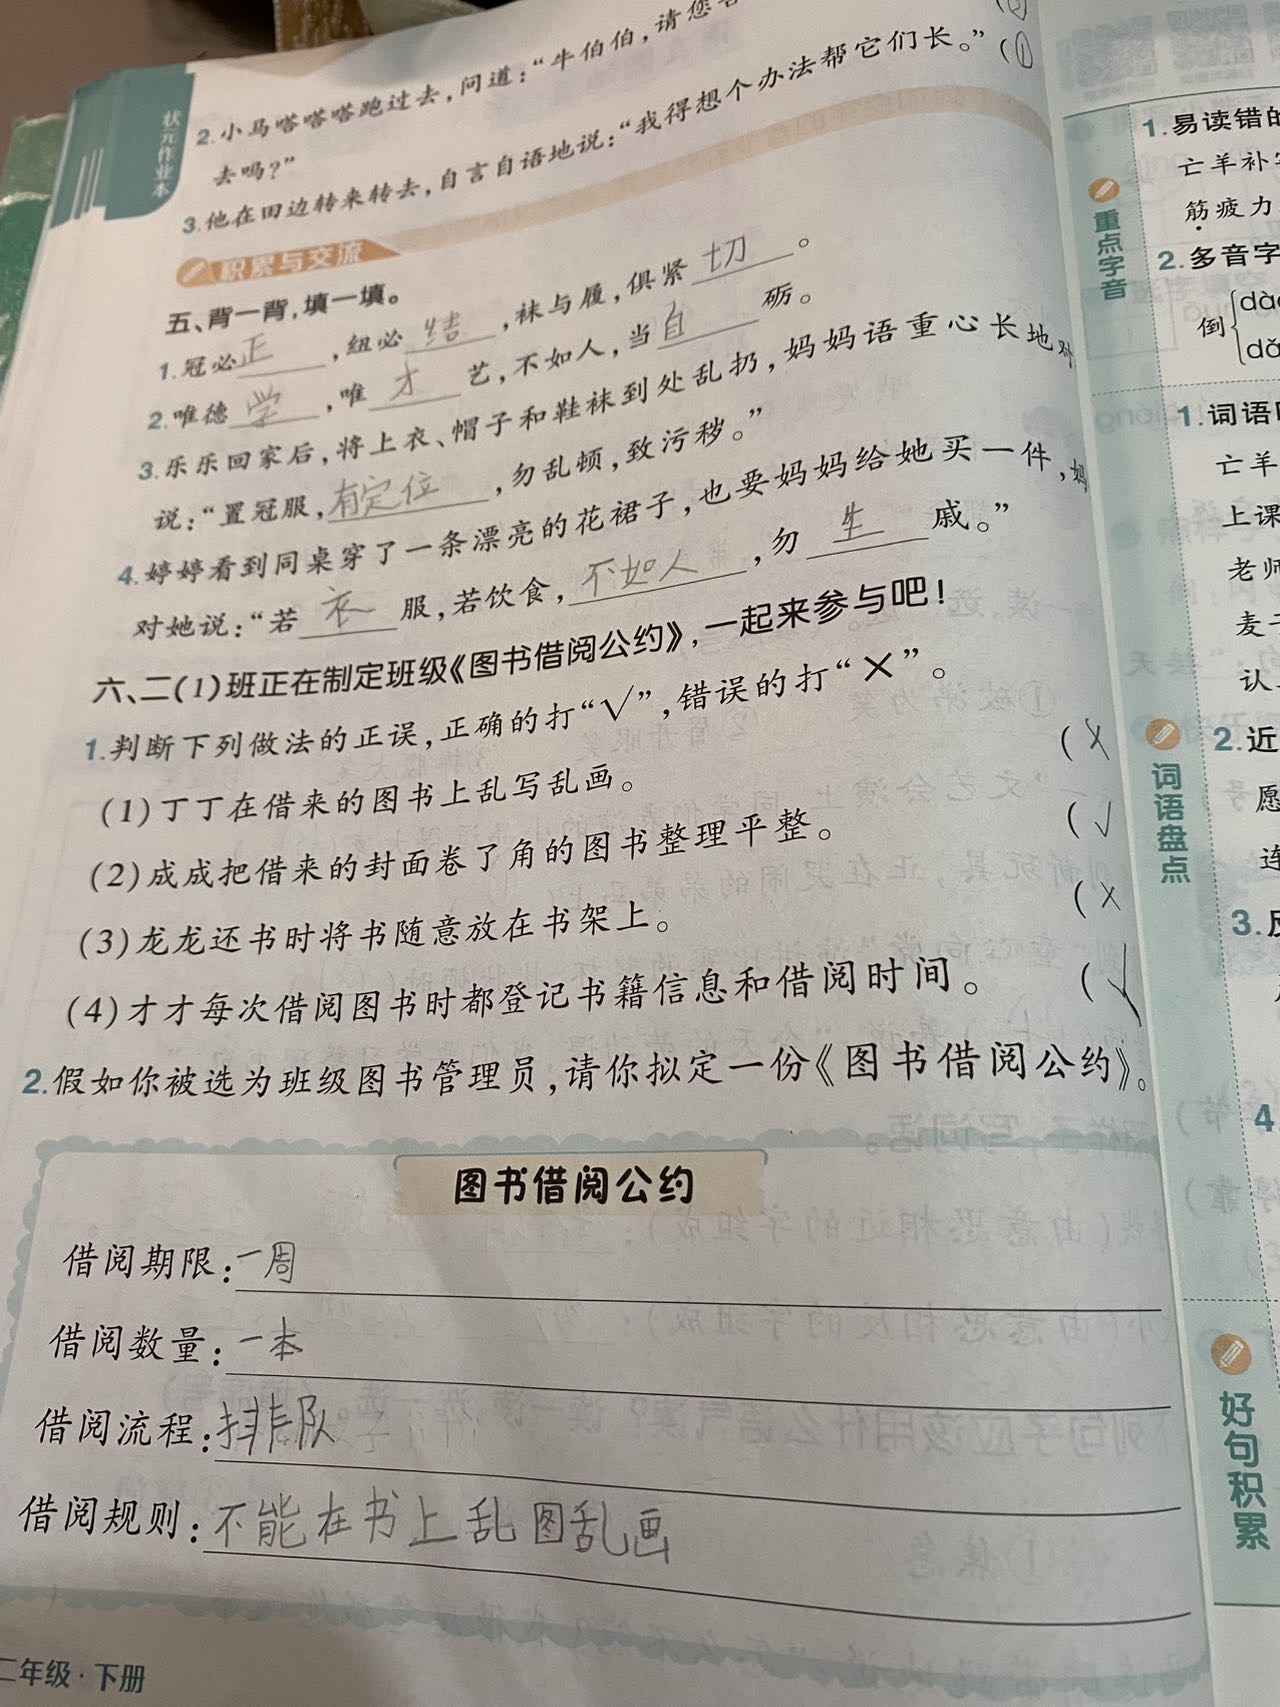 状元作业本
2.小马嗒嗒嗒跑过去，问道：“牛伯伯，请您
去吗？”
3.他在田边转来转去，自言自语地说：“我得想个办法帮它们长。” (①
积累与交流
五、背一背，填一填。
1.冠必正，纽必结，袜与履，俱紧切。
2.唯德学，唯才艺，不如人，当自砺。
3.乐乐回家后，将上衣、帽子和鞋袜到处乱扔，妈妈语重心长地对
说：“置冠服，有定位，勿乱顿，致污秽。”
4.婷婷看到同桌穿了一条漂亮的花裙子，也要妈妈给她买一件，妈
对她说：“若衣服，若饮食，不如人，勿生戚。”
六、二(1)班正在制定班级《图书借阅公约》，一起来参与吧！
1.判断下列做法的正误，正确的打“√”，错误的打“×”。
(1)丁丁在借来的图书上乱写乱画。 (×
(2)成成把借来的封面卷了角的图书整理平整。 (√
(3)龙龙还书时将书随意放在书架上。 (×
(4)才才每次借阅图书时都登记书籍信息和借阅时间。 (√
2.假如你被选为班级图书管理员，请你拟定一份《图书借阅公约》。
图书借阅公约
借阅期限：一周
借阅数量：一本
借阅流程：排队
借阅规则：不能在书上乱图乱画
二年级·下册
重点字音
1.易读错的
亡羊补
筋疲力
2.多音字
倒
dǎ
词语盘点
1.词语
亡羊
上课
老师
麦
认
2.近
愿
连
3.
4
好句积累